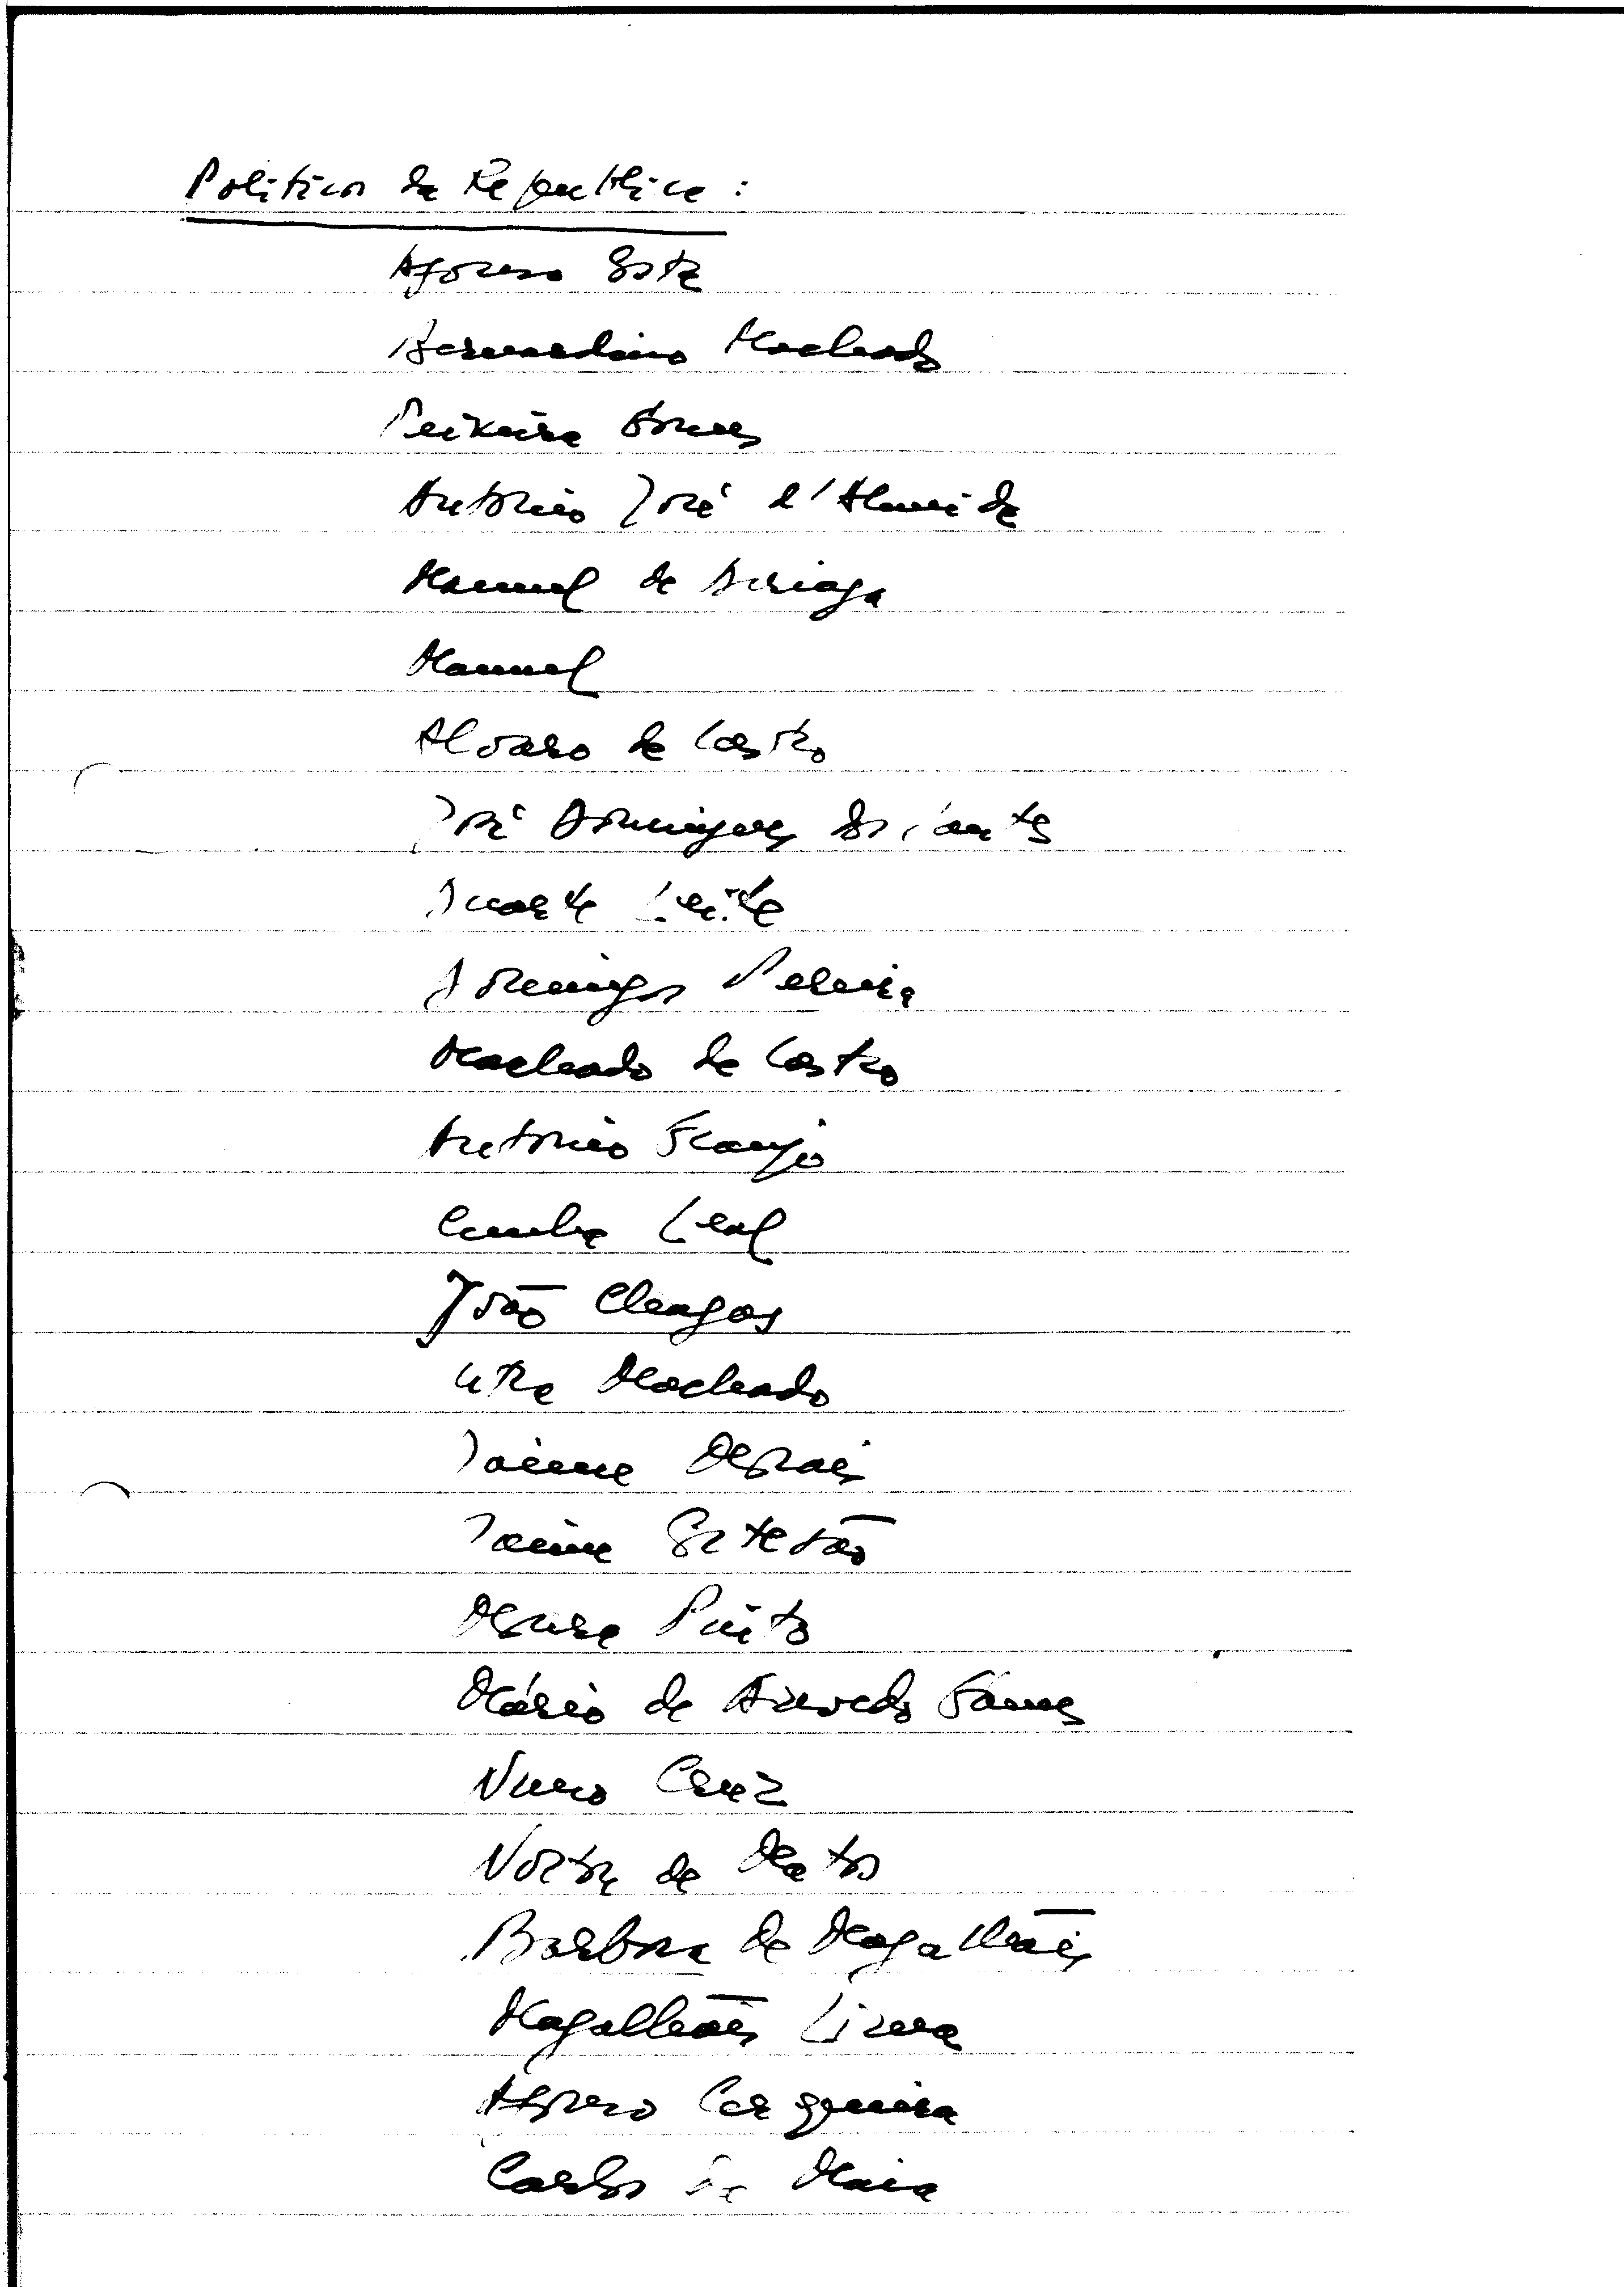 Políticos da República:
Afonso Costa
Bernardino Machado
Teixeira Gomes
António José d'Almeida
Manuel de Arriaga
Manuel
Alvaro de Castro
José Domingues dos Santos
Duarte Leite
Domingos Pereira
Machado de Castro
António Granjo
Cunha Leal
João Chagas
Utra Machado
Jaime Morais
Jaime Cortesão
Moura Pinto
Mário de Azevedo Gomes
Nuno Cruz
Norton de Matos
Barbosa de Magalhães
Magalhães Lima
Afonso Cerqueira
Carlos da Maia